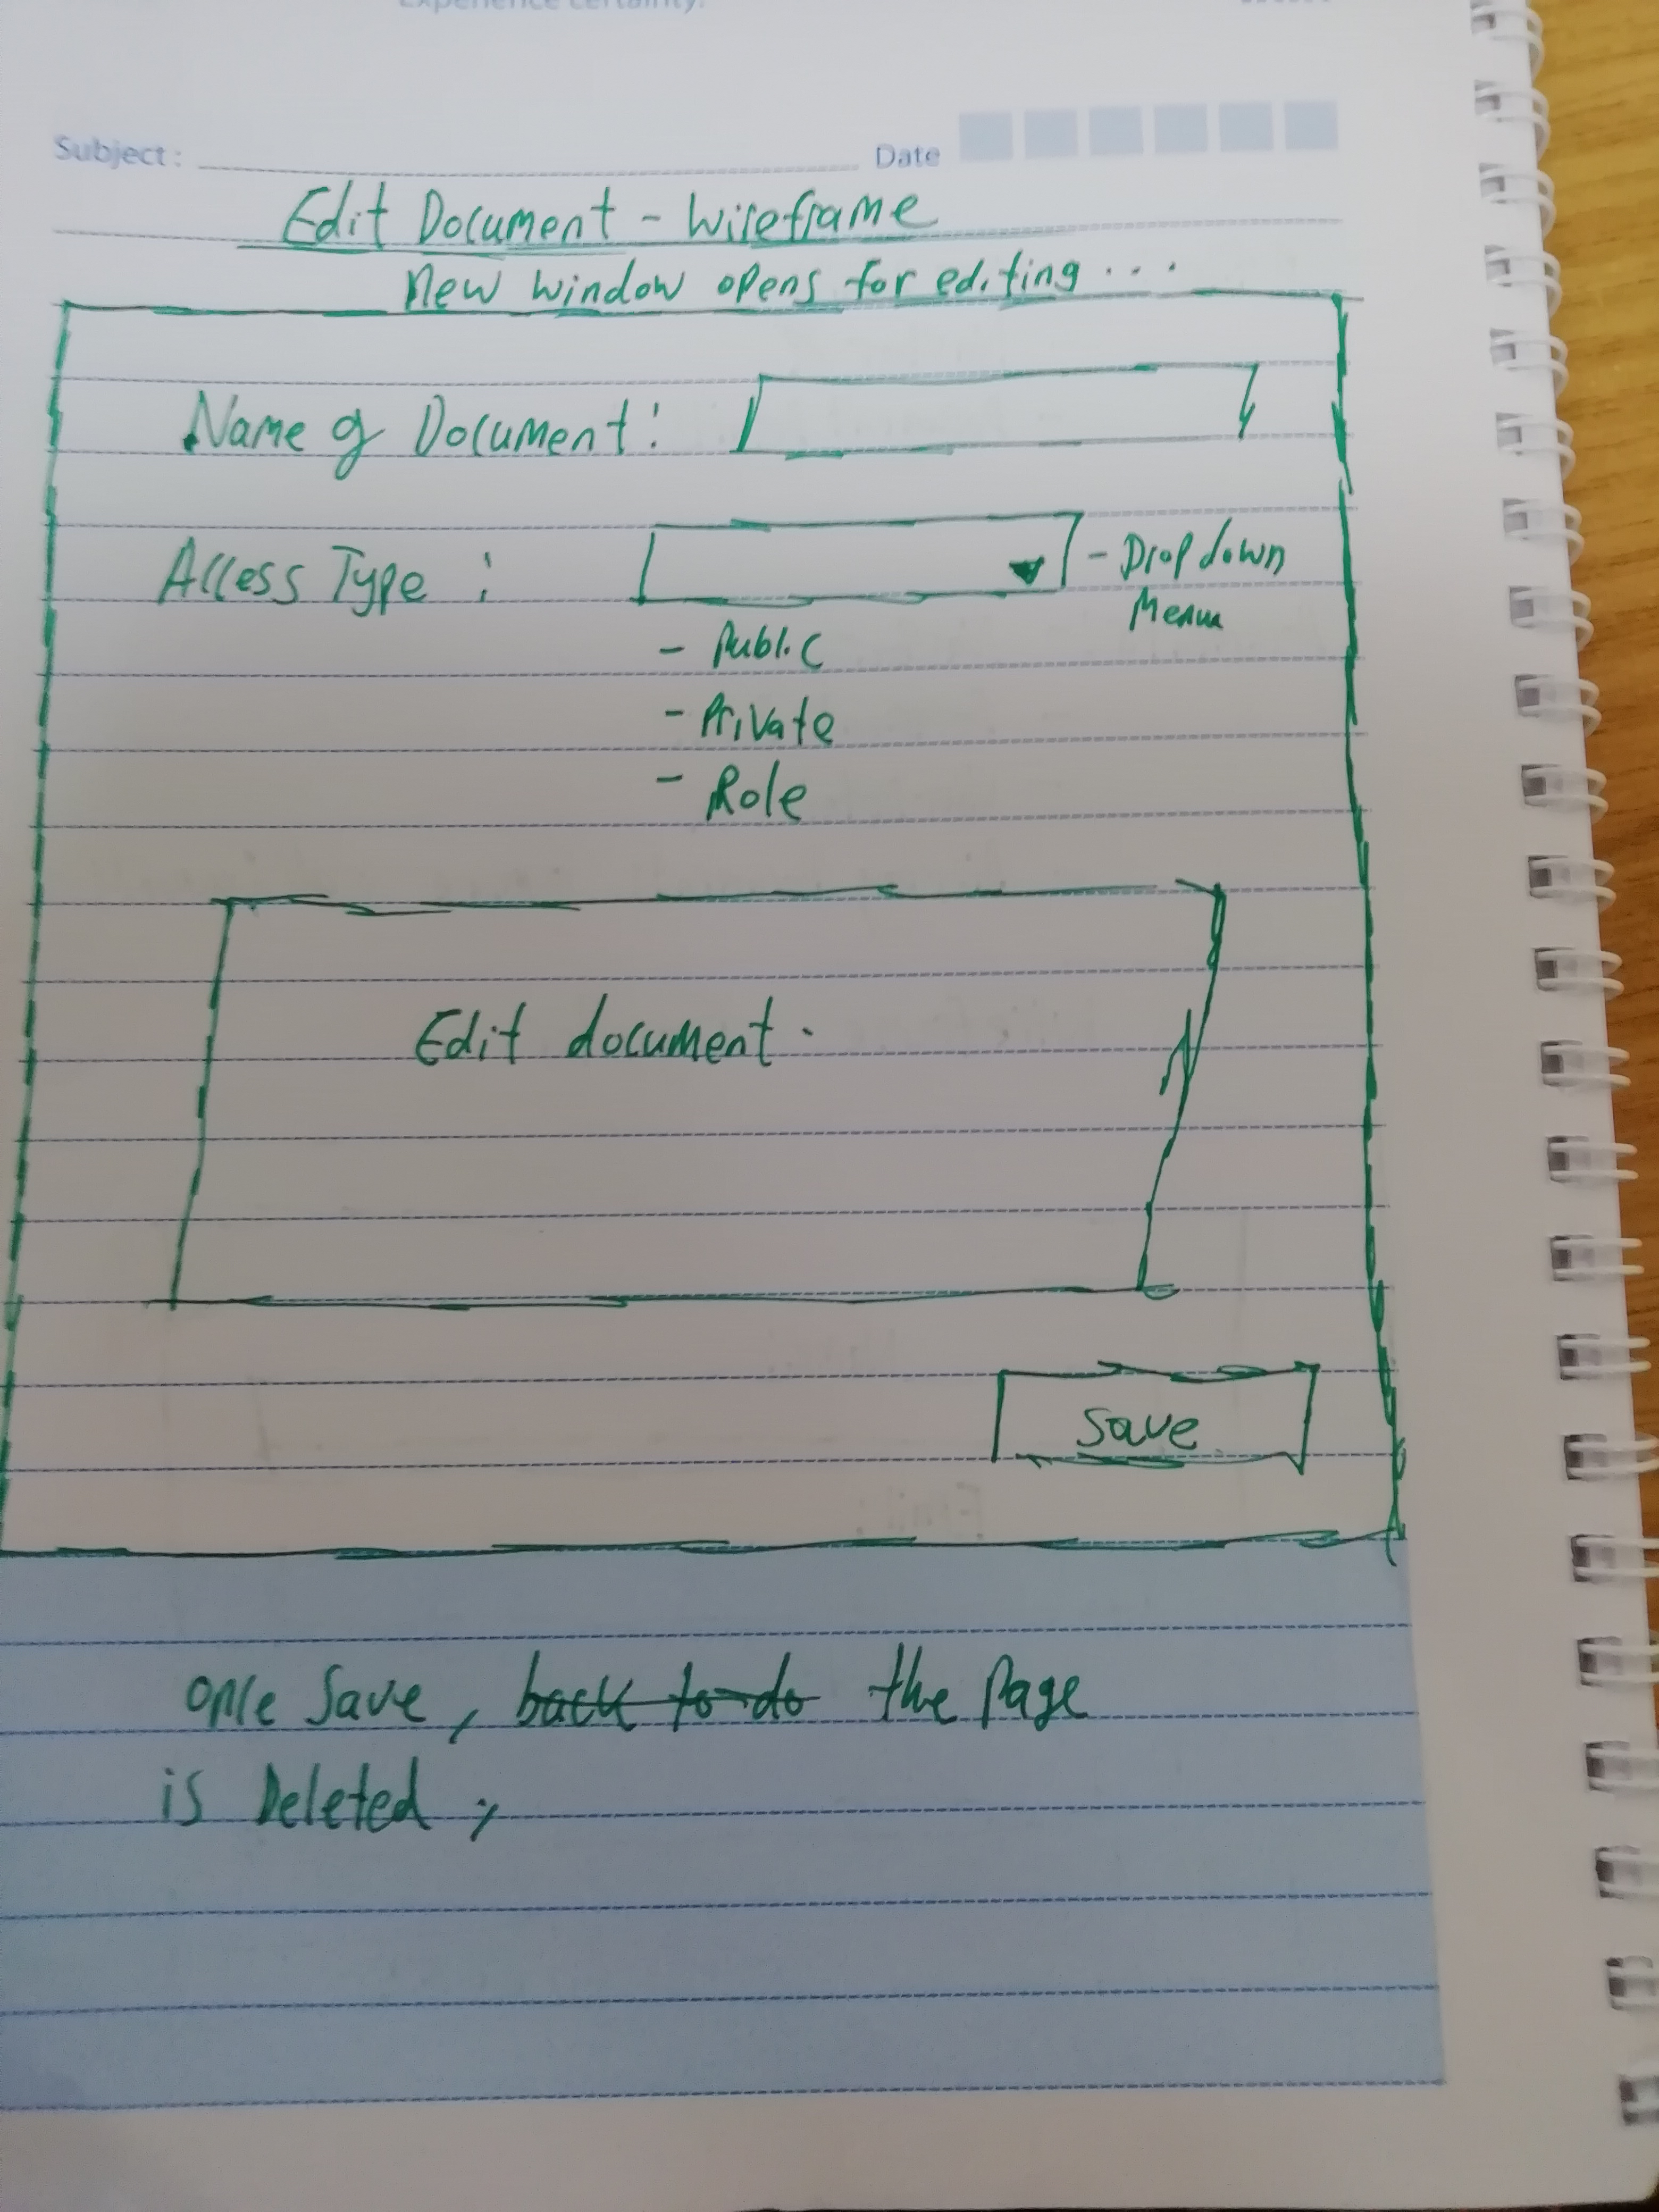 Experience certainty.
Subject : Date
Edit Document - Wireframe
New window opens for editing ...
Name of Document :
Access Type : - Dropdown
Menu
- Public
- Private
- Role
Edit document.
Save
once save, back to do the page
is Deleted,